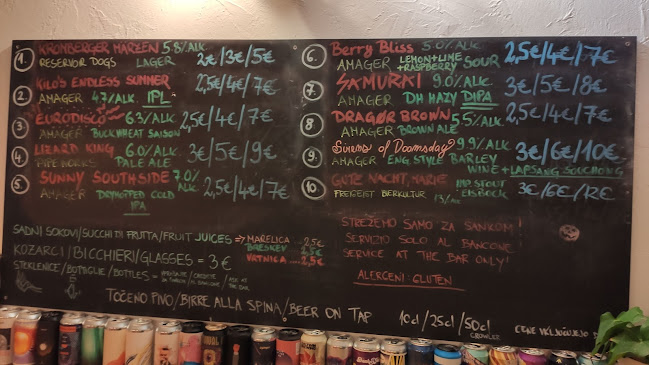 1. KROMBERGER MARZEN 5.8%ALK. 2€/3€/5€
RESERVOIR DOGS LAGER
2 KILO'S ENDLESS SUMMER 2,5€/4€/7€
AMAGER 4.7%ALK. IPL
3 EURODISCO 6.3%ALK 2,5€/4€/7€
AMAGER BUCKWHEAT SAISON
4 LIZARD KING 6.0%ALK. 3€/5€/9€
PIPEWORKS PALE ALE
5 SUNNY SOUTHSIDE 7.0% ALK. 2,5€/4€/7€
AMAGER DRYHOPPED COLD IPA
6. Berry Bliss 5.0%ALK. 2,5€/4€/7€
AMAGER LEMON+LIME +RASPBERRY SOUR
7. SAMURAI 9.0%ALK. 3€/5€/8€
AMAGER DH HAZY DIPA
8 DRAGØR BROWN 5.5%ALK. 2,5€/4€/7€
AMAGER BROWN ALE
9. Sirens of Doomsday? 9.9%ALK. 3€/6€/10€
AMAGER ENG STYLE BARLEY WINE+LAPSANG SOUCHONG
10 GUTE NACHT, MARIE IMP. STOUT EISBOCK 3€/6€/12€
FREIGEIST BIERKULTUR 13%ALK
SADNI SOKOVI/SUCCHI DI FRUTTA/FRUIT JUICES → MARELICA .. 2,5€
BRESKEV 2,5€
VRTNICA .. 2,5€
KOZARCI/BICCHIERI/GLASSES = 3€
STEKLENICE/BOTTIGLIE/BOTTLES =
STREŽEMO SAMO ZA ŠANKOM!
SERVIZIO SOLO AL BANCONE
SERVICE AT THE BAR ONLY!
ALERGENI: GLUTEN
TOČENO PIVO/BIRRE ALLA SPINA/BEER ON TAP 10cl/25cl/50cl
CROWLER
CENE VKLJUČUJEJO